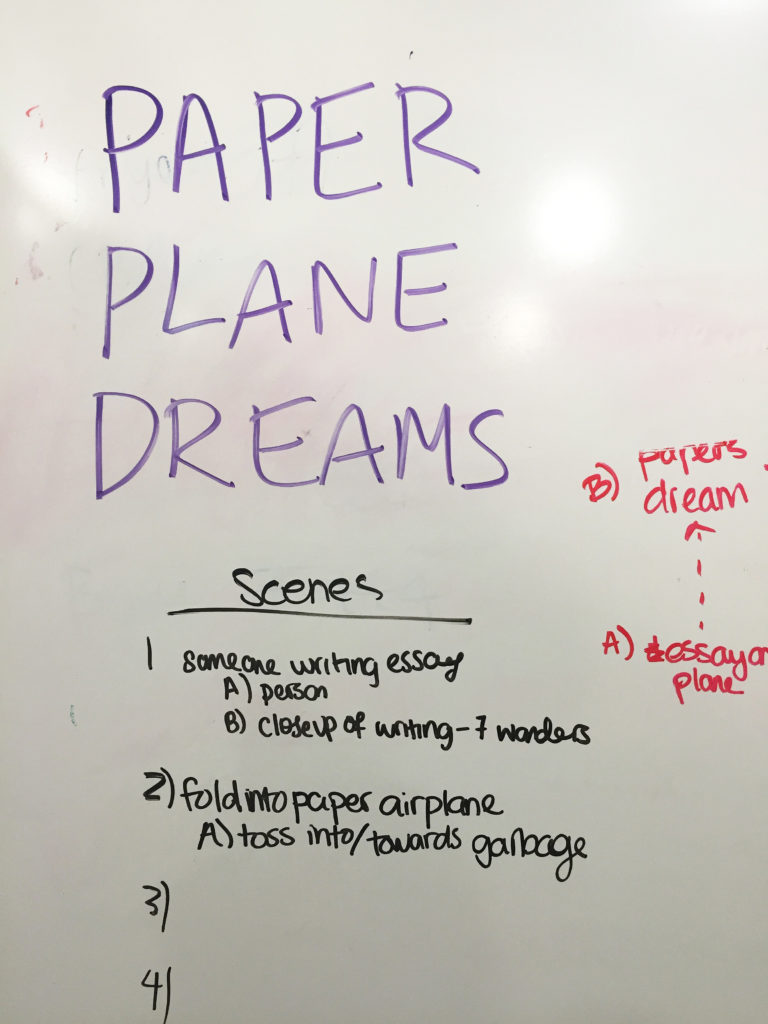 PAPER
PLANE
DREAMS
Scenes
1 someone writing essay
A) person
B) closeup of writing - 7 wonders
2) fold into paper airplane
A) toss into/towards garbage
3)
4)
B) papers
dream
A) essay on
plane